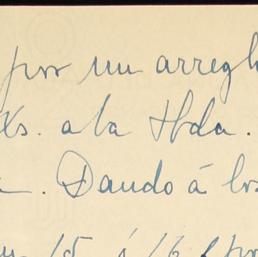 por un arregl
Xs. a la Hda.
. Dando á los
15 á 16